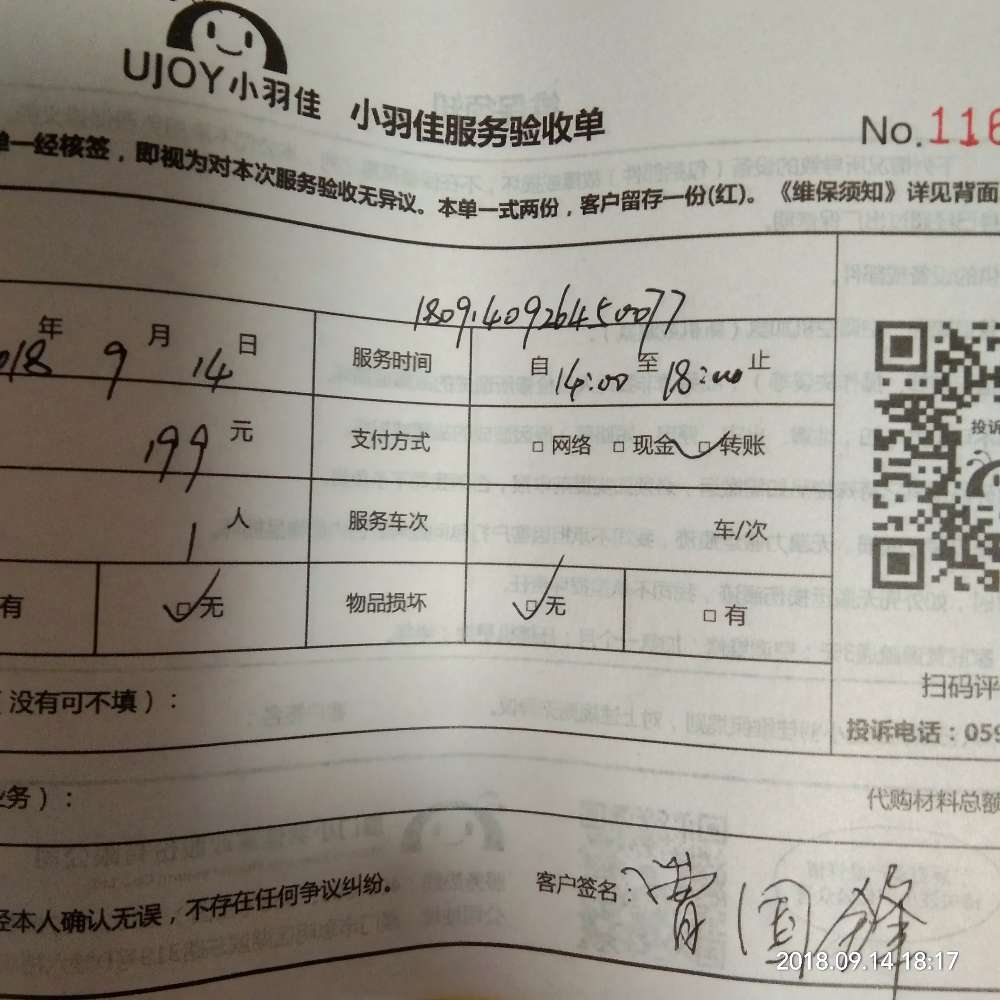 UJOY小羽佳 小羽佳服务验收单 No.116
单一经核签，即视为对本次服务验收无异议。本单一式两份，客户留存一份(红)。《维保须知》详见背面
2018年 9月 14日 服务时间 自14:00至18:00止
199元 支付方式 □ 网络 □ 现金 □ 转账
1人 服务车次 车/次
有 □无 物品损坏 □无 □有
投诉
扫码评
（没有可不填）：
投诉电话：059
业务）：
代购材料总额
经本人确认无误，不存在任何争议纠纷。
客户签名：
2018.09.14 18:17